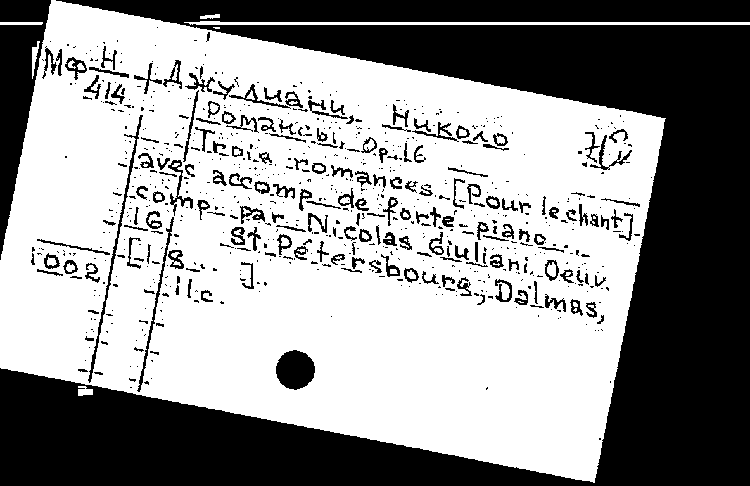 Мф Н
414
Джулиани, Николо
Романсы, Op.16
Trois romances. [Pour le chant]
avec accomp. de forte-piano...
comp. par Nicolas Giuliani. Oeuv.
16. St. Pétersbourg, Dalmas,
[18... ].
11 с.
1002